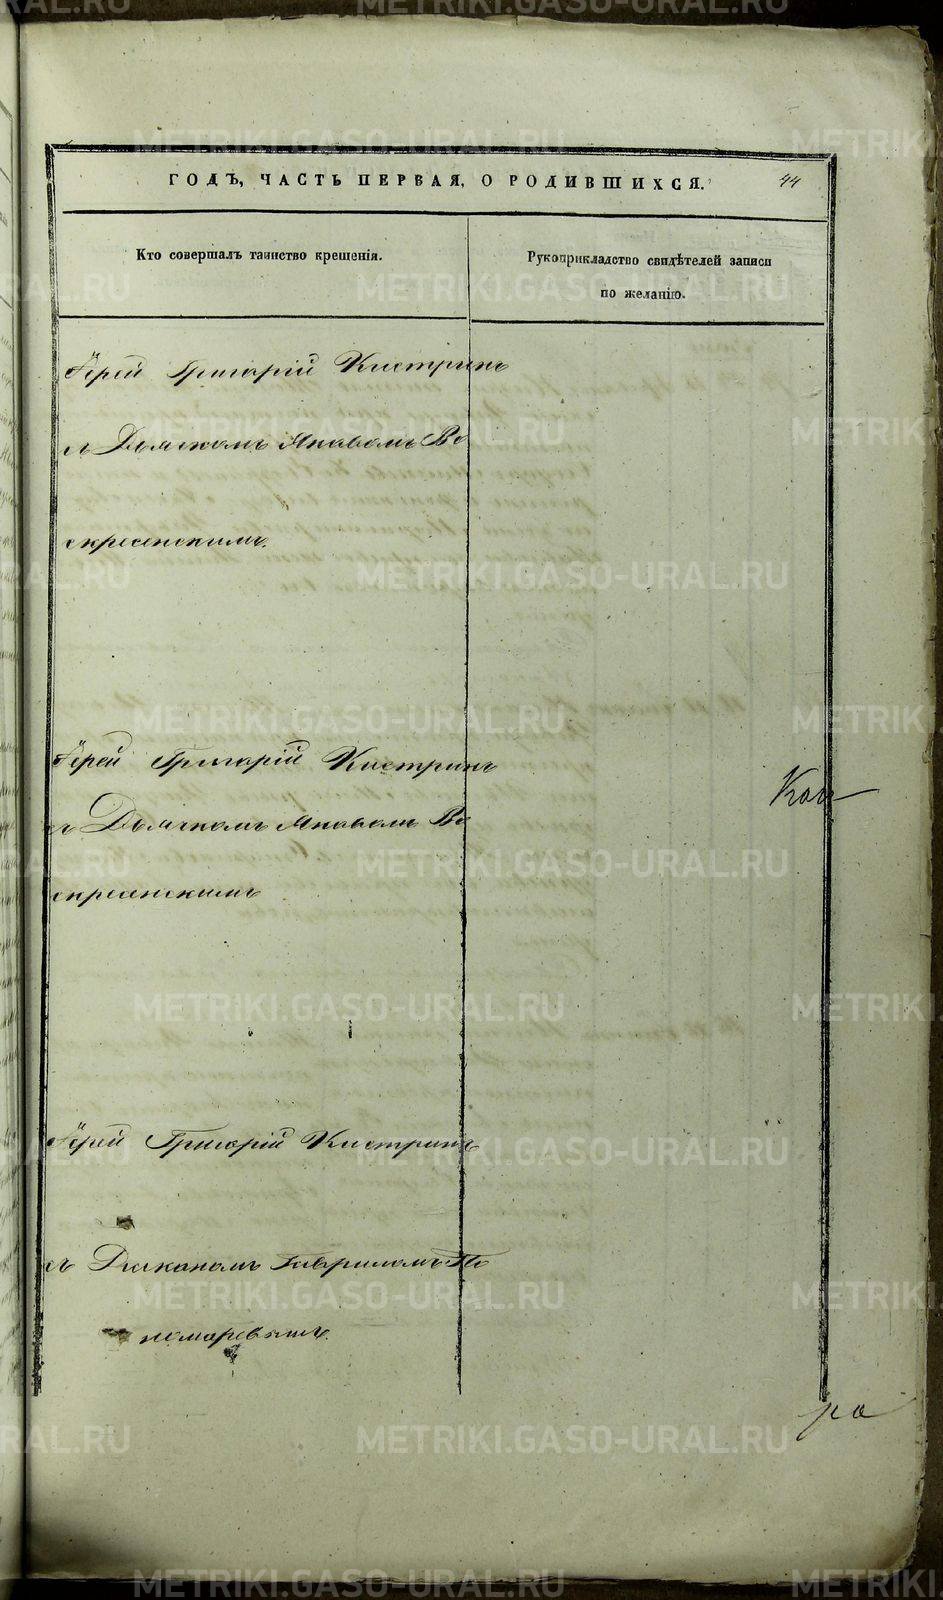 ГОДЪ, ЧАСТЬ ПЕРВАЯ, О РОДИВШИХСЯ. 44
Кто совершалъ таинство крещенія.
Рукоприкладство свидѣтелей записи
по желанію.
Іерей Григорій Кистринъ
съ Дьячкомъ Яковомъ Во
скресенскимъ.
Іерей Григорій Кистринъ
съ Дьячкомъ Яковомъ Во
скресенскимъ
Іерей Григорій Кистринъ
съ Діакономъ Гавриломъ По
номаревымъ.
ра
METRIKI.GASO-URAL.RU